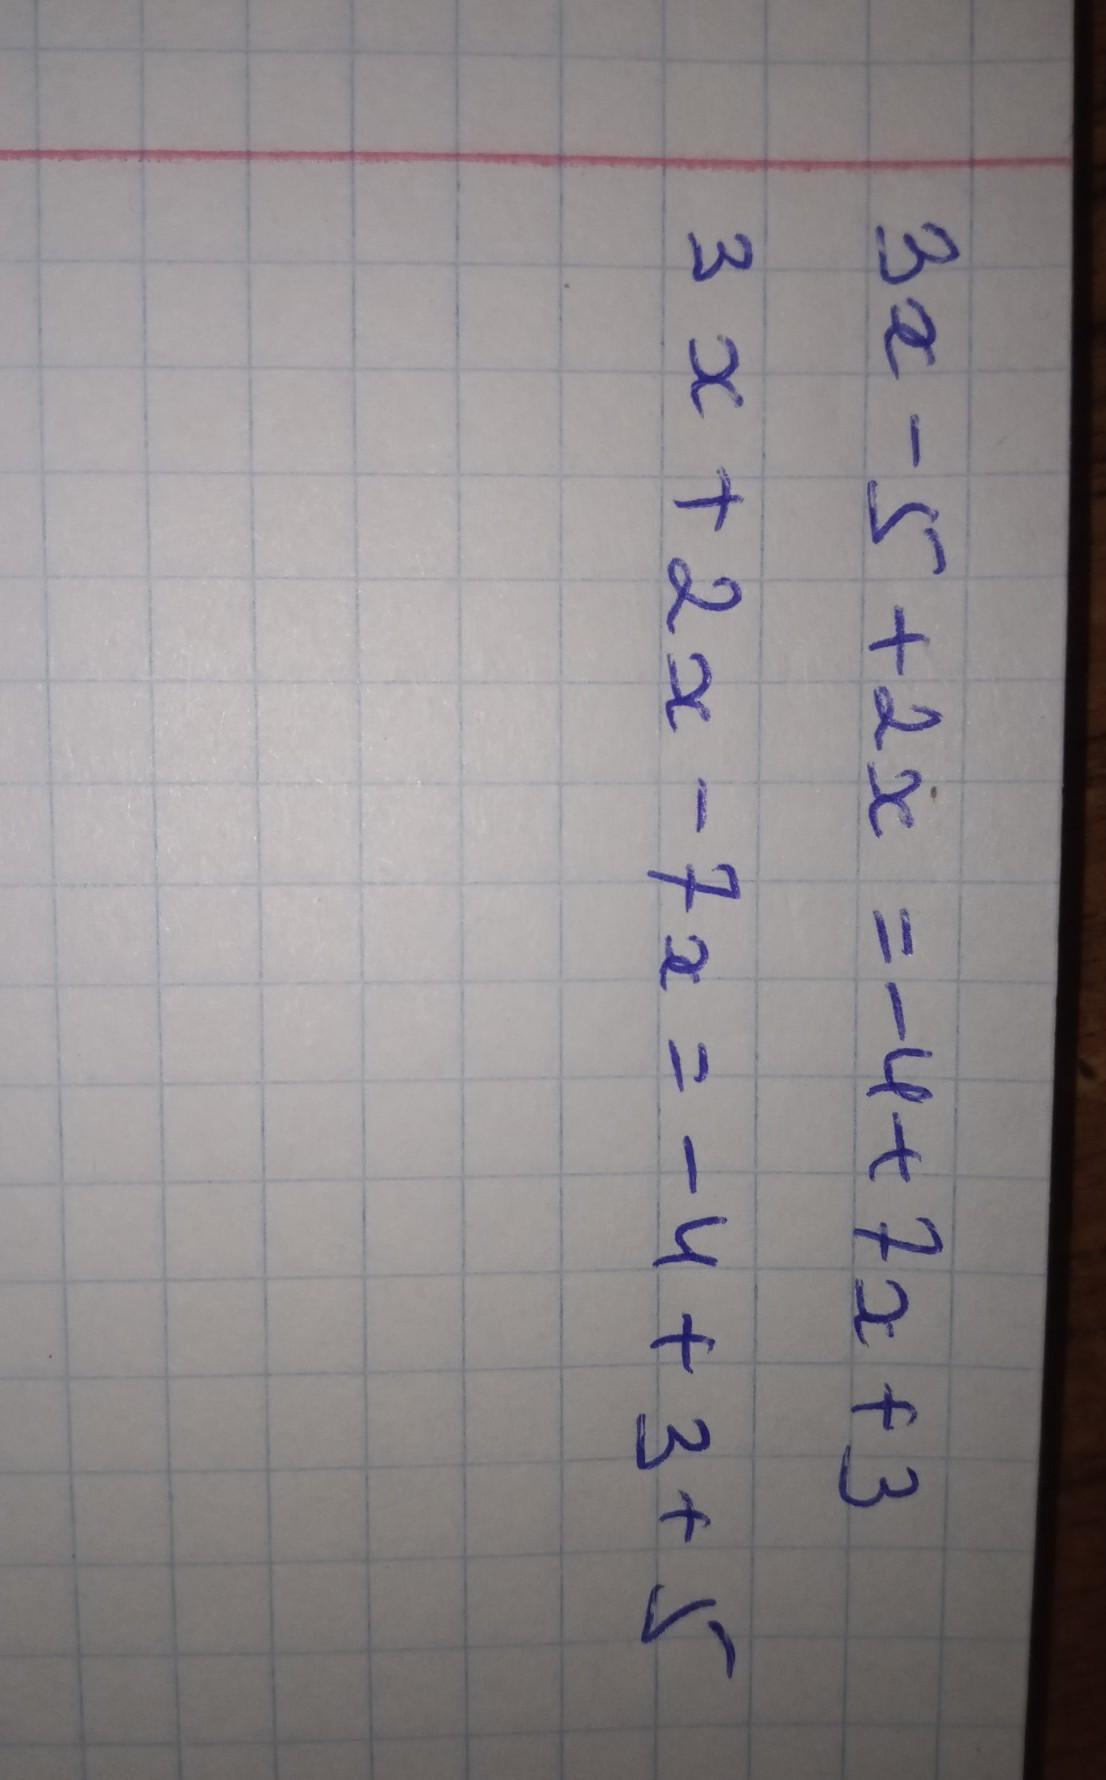 3x - 5 + 2x = -4 + 7x + 3
3x + 2x - 7x = -4 + 3 + 5